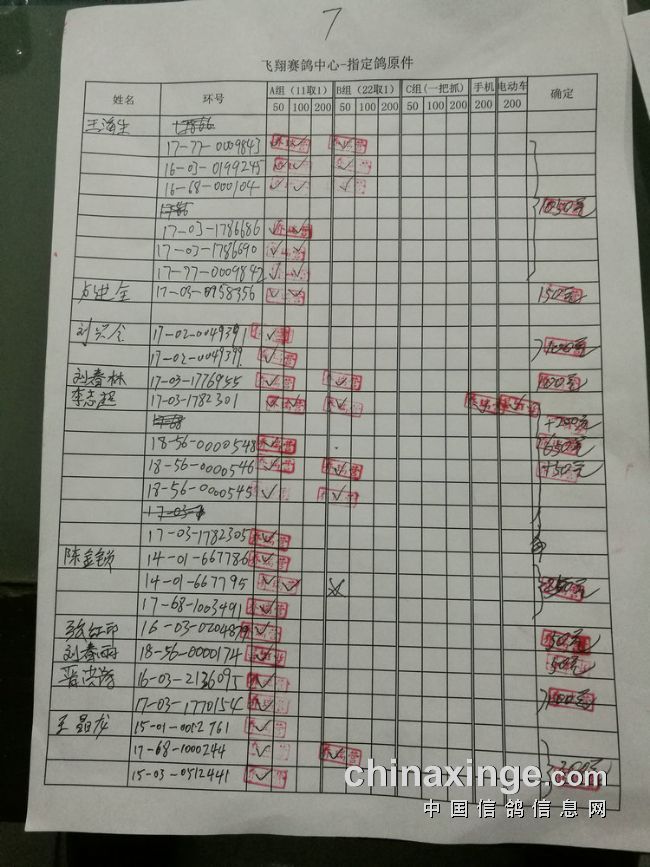 7
飞翔赛鸽中心-指定鸽原件
姓名 环号 A组（11取1） B组（22取1） C组(一把抓) 手机 电动车 确定
50 100 200 50 100 200 50 100 200 200 200
17-77-0009843
16-03-0199245
16-68-000104
17-03-1786686
17-03-1786690
17-77-0009842
17-03-0958356 150元
17-02-0049391
17-02-0049399
刘春林 17-03-1776955 100元
李志超 17-03-1782301
+200元
18-56-0000548 650元
18-56-0000546 +50元
18-56-0000545
17-03-1782305
陈金锁 14-01-667786
14-01-667795
17-68-1003491
张红印 16-03-0204879 50元
刘春雨 18-56-0000174 50元
16-03-2136095
17-03-1770154 100元
15-01-0012761
17-68-1000244
15-03-0512441
chinaxinge.com
中国信鸽信息网